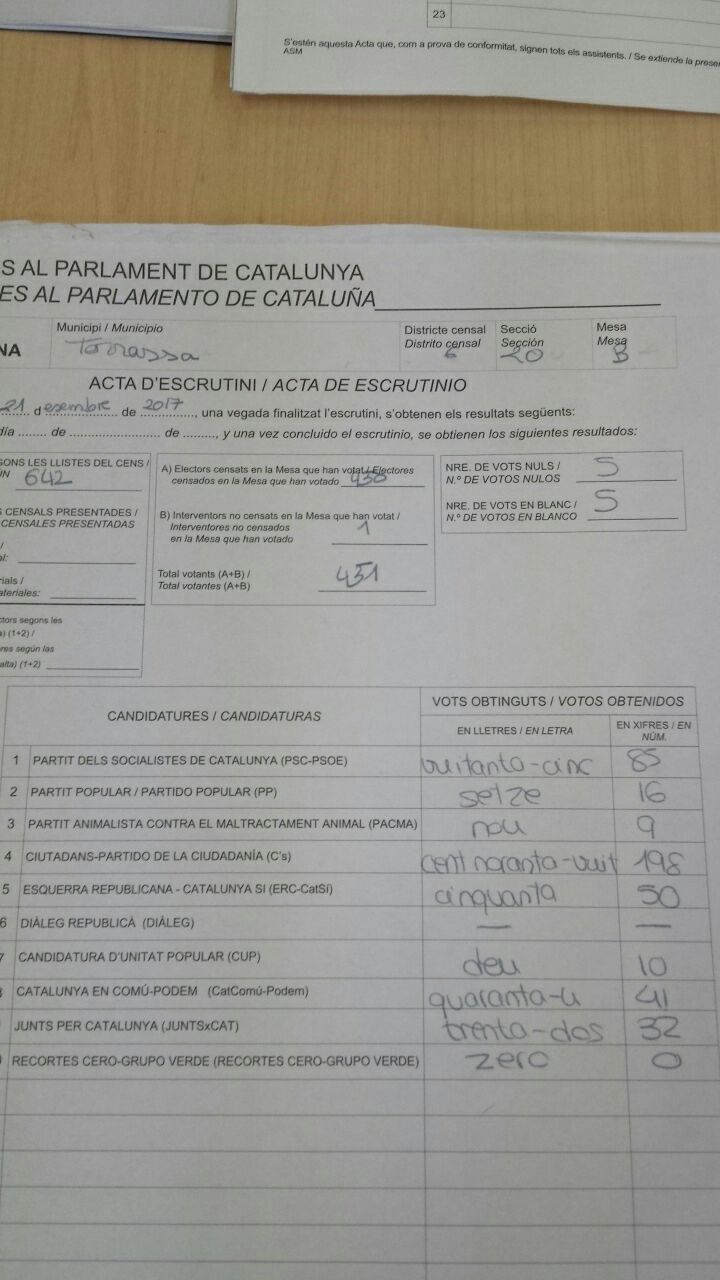 23
S'estén aquesta Acta que, com a prova de conformitat, signen tots els assistents. / Se extiende la prese
ASM
S AL PARLAMENT DE CATALUNYA
ES AL PARLAMENTO DE CATALUÑA
NA
Municipi / Municipio
Terrassa
Districte censal
Distrito censal
6
Secció
Sección
20
Mesa
Mesa
B
ACTA D'ESCRUTINI / ACTA DE ESCRUTINIO
21 desembre de 2017, una vegada finalitzat l'escrutini, s'obtenen els resultats següents:
día ........ de ........................... de ........., y una vez concluido el escrutinio, se obtienen los siguientes resultados:
GONS LES LLISTES DEL CENS /
ÚN 642
S CENSALS PRESENTADES /
CENSALES PRESENTADAS
/
al:
rials /
ateriales:
ctors segons les
a) (1+2) /
res según las
alta) (1+2)
A) Electors censats en la Mesa que han votat / Electores
censados en la Mesa que han votado
B) Interventors no censats en la Mesa que han votat /
Interventores no censados
en la Mesa que han votado
1
Total votants (A+B) /
Total votantes (A+B)
451
NRE. DE VOTS NULS /
N.º DE VOTOS NULOS
5
NRE. DE VOTS EN BLANC /
N.º DE VOTOS EN BLANCO
5
CANDIDATURES / CANDIDATURAS
VOTS OBTINGUTS / VOTOS OBTENIDOS
EN LLETRES / EN LETRA
EN XIFRES / EN
NÚM.
1 PARTIT DELS SOCIALISTES DE CATALUNYA (PSC-PSOE) vuitanta-cinc 85
2 PARTIT POPULAR / PARTIDO POPULAR (PP) setze 16
3 PARTIT ANIMALISTA CONTRA EL MALTRACTAMENT ANIMAL (PACMA) nou 9
4 CIUTADANS-PARTIDO DE LA CIUDADANÍA (C's) cent noranta-vuit 198
5 ESQUERRA REPUBLICANA - CATALUNYA SI (ERC-CatSí) cinquanta 50
6 DIÀLEG REPUBLICÀ (DIÀLEG) — —
7 CANDIDATURA D'UNITAT POPULAR (CUP) deu 10
CATALUNYA EN COMÚ-PODEM (CatComú-Podem) quaranta-u 41
JUNTS PER CATALUNYA (JUNTSxCAT) trenta-dos 32
RECORTES CERO-GRUPO VERDE (RECORTES CERO-GRUPO VERDE) zero 0